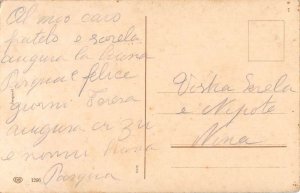 Al mio caro
fratelo e sorela
augura la buona
Pasqua e felice
giorni Teresa
augura ai zii
e nonni buona
Pasqua
Vostra Sorela
e Nipote
Nina
1296